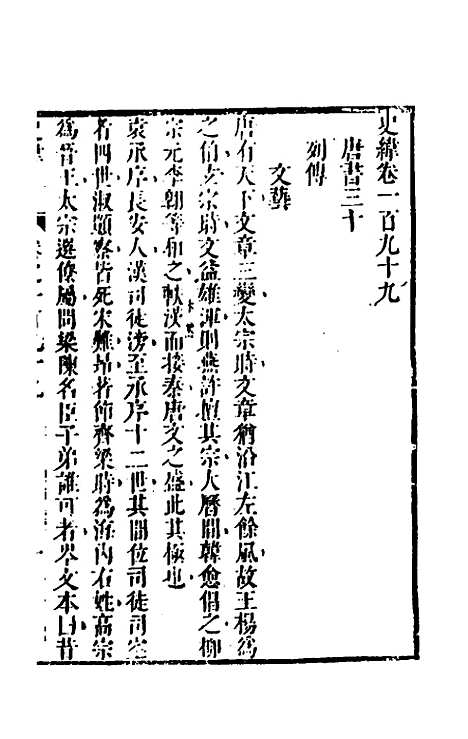 史緯卷一百九十九
唐書三十
列傳
文藝
唐有天下文章三變太宗時文章猶沿江左餘風故王楊為
之伯玄宗時文益雄渾則燕許擅其宗大曆間韓愈倡之柳
宗元李翱等和之軼漢而接秦唐文之盛此其極也
袁承序長安人漢司徒滂至承序十二世其間位司徒司空
者四世淑顗察皆死宋難昂著節齊梁時為海內右姓高宗
為晉王太宗選僚屬問梁陳名臣子弟誰可者岑文本曰昔